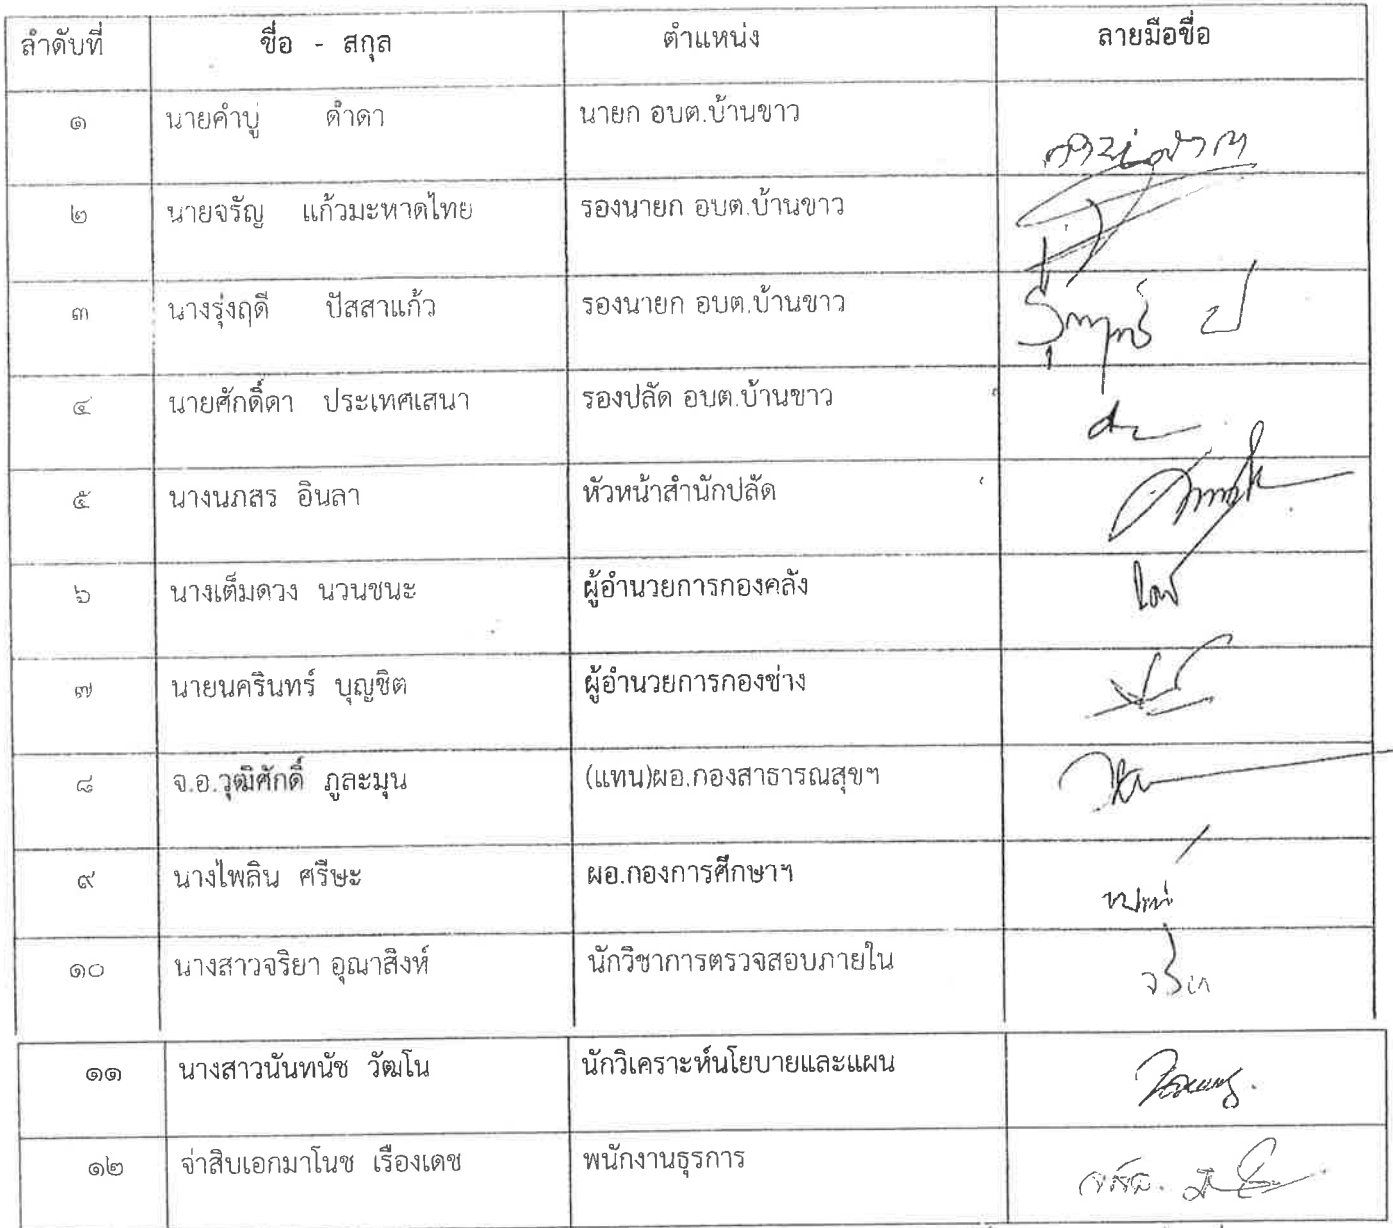 ลำดับที่ ชื่อ - สกุล ตำแหน่ง ลายมือชื่อ
๑ นายคำบู่ ดำดา นายก อบต.บ้านขาว
๒ นายจรัญ แก้วมะหาดไทย รองนายก อบต.บ้านขาว
๓ นางรุ่งฤดี ปัสสาแก้ว รองนายก อบต.บ้านขาว
๔ นายศักดิ์ดา ประเทศเสนา รองปลัด อบต.บ้านขาว
๕ นางนภสร อินลา หัวหน้าสำนักปลัด
๖ นางเต็มดวง นวนชนะ ผู้อำนวยการกองคลัง
๗ นายนครินทร์ บุญชิต ผู้อำนวยการกองช่าง
๘ จ.อ.วุฒิศักดิ์ ภูละมุน (แทน)ผอ.กองสาธารณสุขฯ
๙ นางไพลิน ศรีษะ ผอ.กองการศึกษาฯ
๑๐ นางสาวจริยา อุณาสิงห์ นักวิชาการตรวจสอบภายใน
๑๑ นางสาวนันทนัช วัฒโน นักวิเคราะห์นโยบายและแผน
๑๒ จ่าสิบเอกมาโนช เรืองเดช พนักงานธุรการ